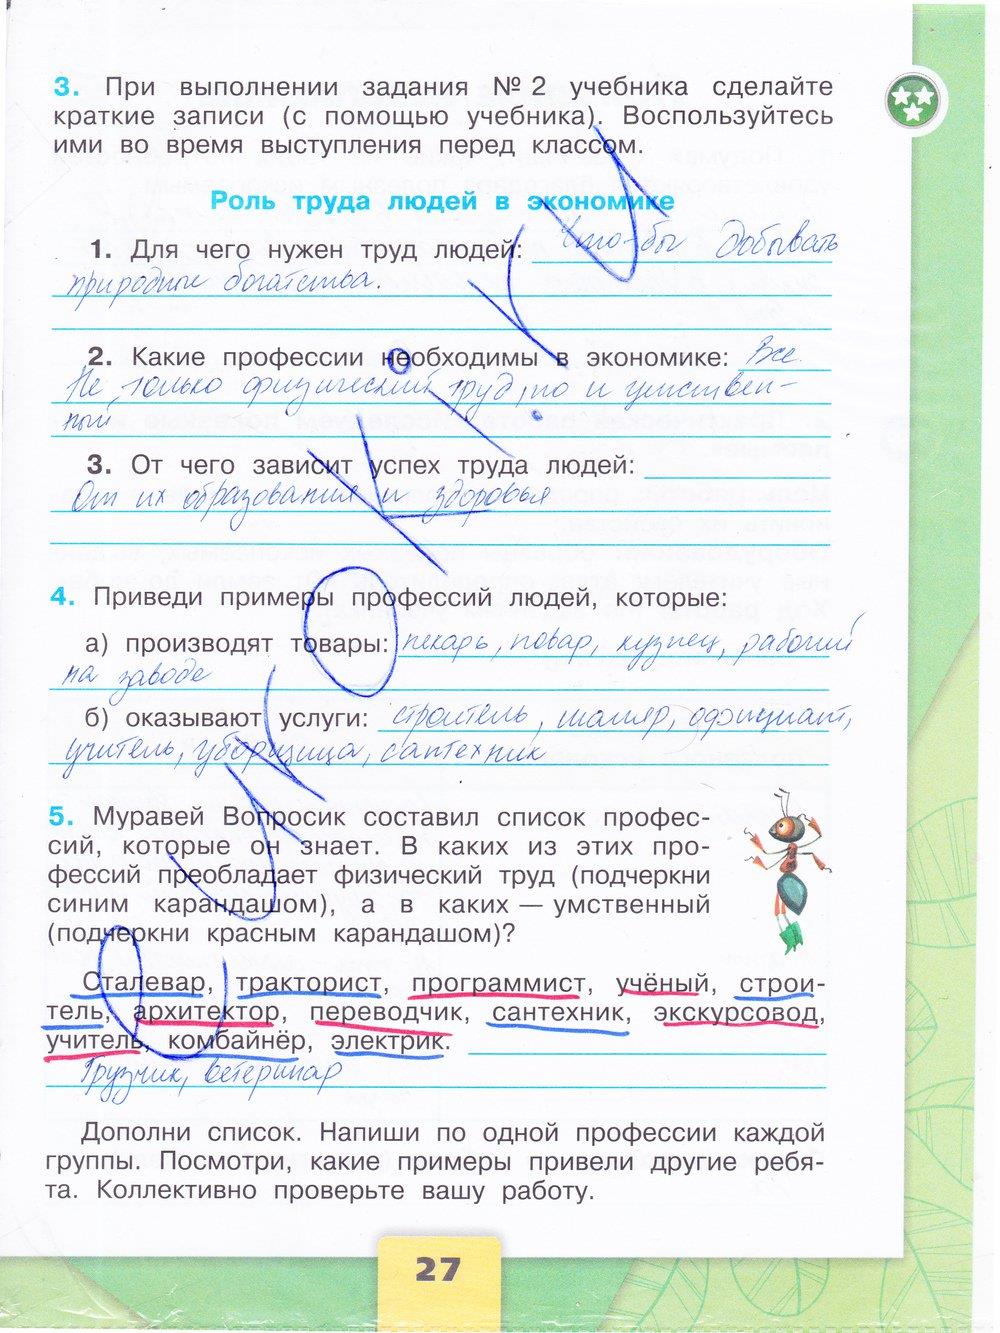 3. При выполнении задания № 2 учебника сделайте
краткие записи (с помощью учебника). Воспользуйтесь
ими во время выступления перед классом.
Роль труда людей в экономике
1. Для чего нужен труд людей: Что-бы добывать
природные богатства.
2. Какие профессии необходимы в экономике: Все.
Не только физический труд, но и умствен-
ный
3. От чего зависит успех труда людей:
От их образования и здоровья
4. Приведи примеры профессий людей, которые:
а) производят товары: пекарь, повар, кузнец, рабочий
на заводе
б) оказывают услуги: строитель, маляр, официант,
учитель, уборщица, сантехник
5. Муравей Вопросик составил список профес-
сий, которые он знает. В каких из этих про-
фессий преобладает физический труд (подчеркни
синим карандашом), а в каких — умственный
(подчеркни красным карандашом)?
Сталевар, тракторист, программист, учёный, строи-
тель, архитектор, переводчик, сантехник, экскурсовод,
учитель, комбайнёр, электрик.
Грузчик, ветеринар
Дополни список. Напиши по одной профессии каждой
группы. Посмотри, какие примеры привели другие ребя-
та. Коллективно проверьте вашу работу.
27